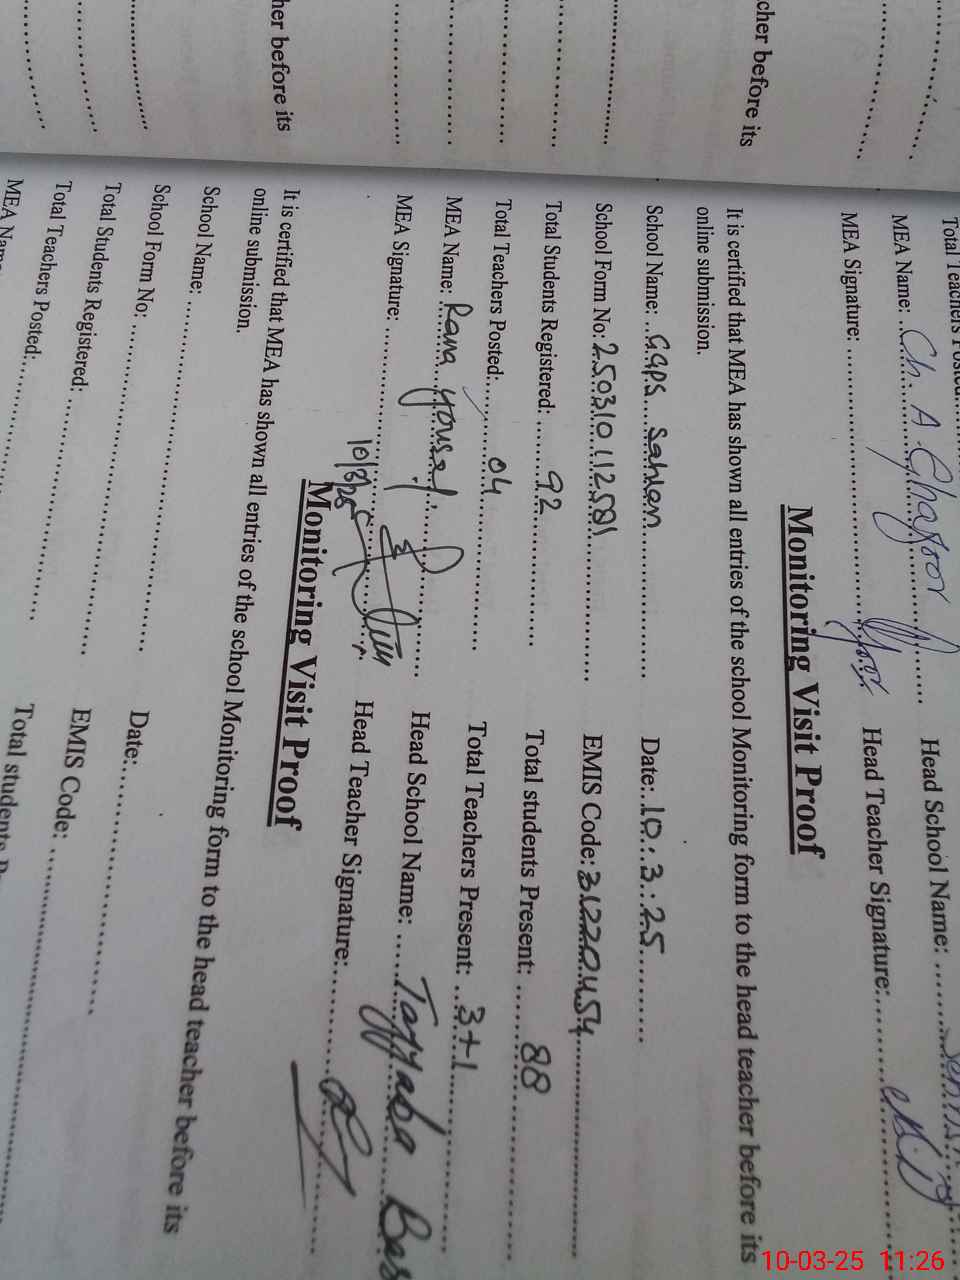 cher before its
cher before its
Total Teachers Posted
MEA Name: Ch. A Ghafoor
Head School Name:
MEA Signature:
Head Teacher Signature:
Monitoring Visit Proof
It is certified that MEA has shown all entries of the school Monitoring form to the head teacher before its
online submission.
School Name: GGPS Sahlan Date: 10.3.25
School Form No: 250310112581 EMIS Code: 31220454
Total Students Registered: 92 Total students Present: 88
Total Teachers Posted: 04 Total Teachers Present: 3+1
MEA Name: Rana Yousaf Head School Name: Tayyaba
MEA Signature: Head Teacher Signature:
10/3/25
Monitoring Visit Proof
It is certified that MEA has shown all entries of the school Monitoring form to the head teacher before its
online submission.
School Name:
School Form No: Date:
Total Students Registered: EMIS Code:
Total Teachers Posted: Total students
MEA Name
10-03-25 11:26